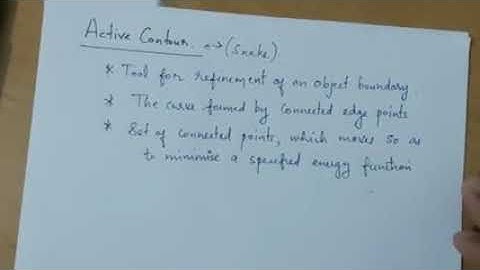 Active Contour. → (Snake)
* Tool for refinement of an object boundary.
* The curve formed by connected edge points
* Set of connected points, which moves so as
to minimise a specified energy function